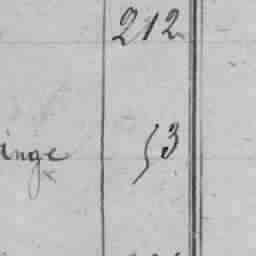 212
inge 53